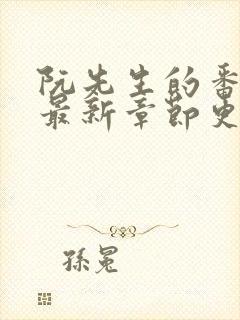 阮先生的番
最新章節史
孫冕